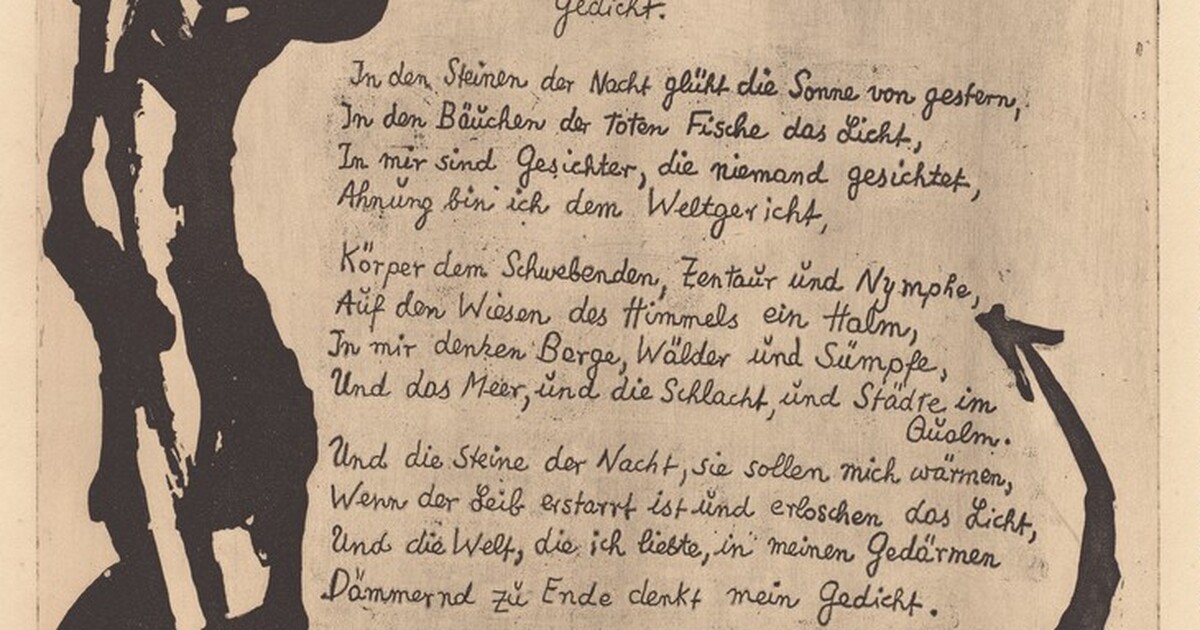 Gedicht.
In den Steinen der Nacht glüht die Sonne von gestern,
In den Bäuchen der toten Fische das Licht,
In mir sind Gesichter, die niemand gesichtet,
Ahnung bin ich dem Weltgericht,
Körper dem Schwebenden, Zentaur und Nymphe,
Auf den Wiesen des Himmels ein Halm,
In mir denken Berge, Wälder und Sümpfe,
Und das Meer, und die Schlacht, und Städte im
Qualm.
Und die Steine der Nacht, sie sollen mich wärmen,
Wenn der Leib erstarrt ist und erloschen das Licht,
Und die Welt, die ich liebte, in meinen Gedärmen
Dämmernd zu Ende denkt mein Gedicht.